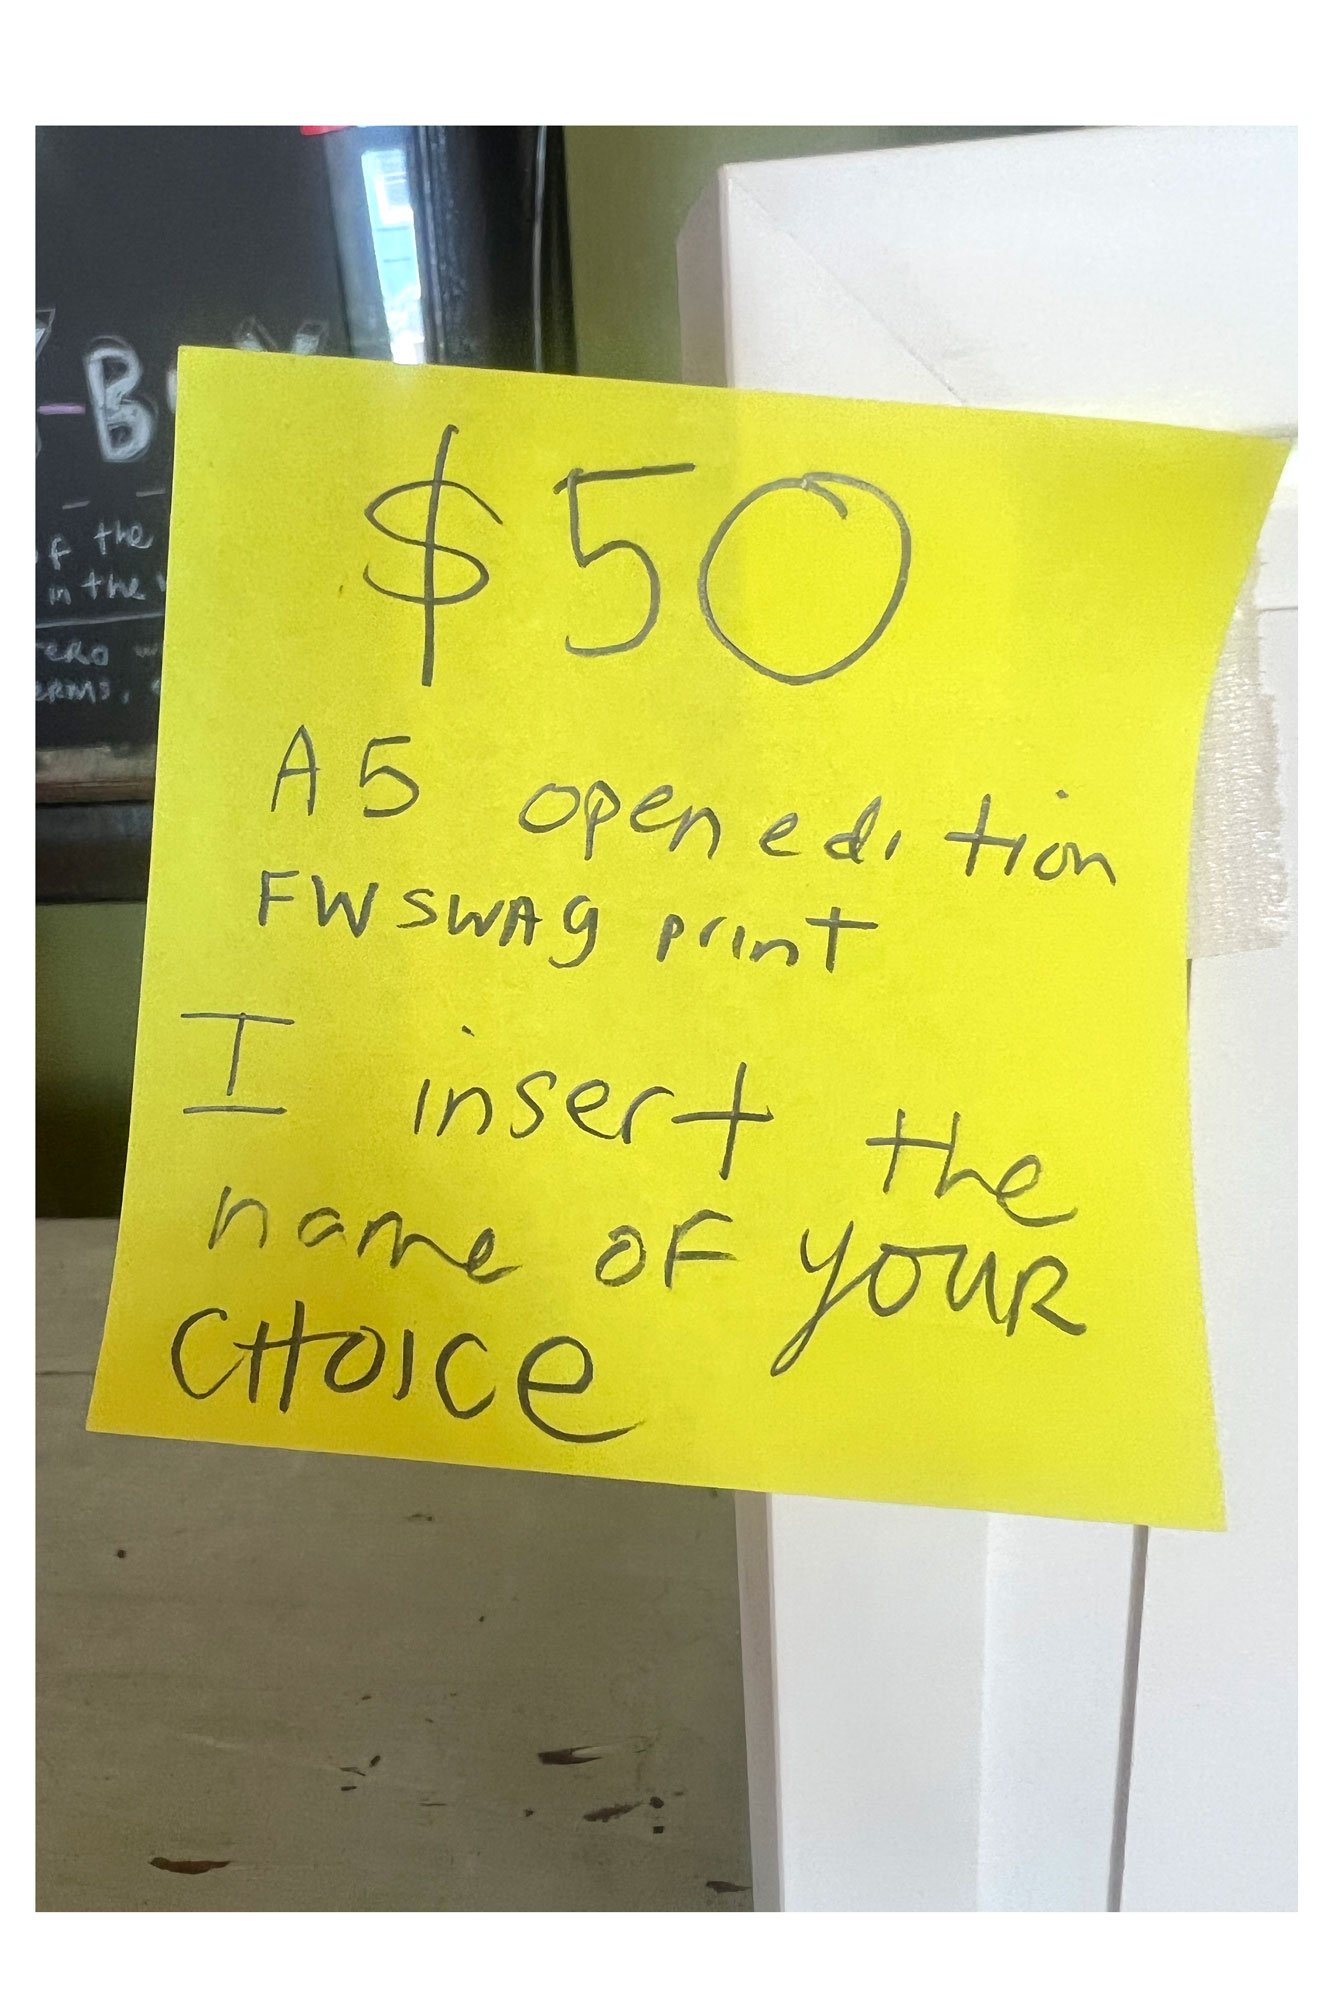 $50
A5 open edition
FWSWAg print
I insert the
name of YOUR
CHOICE
B
of the
in the